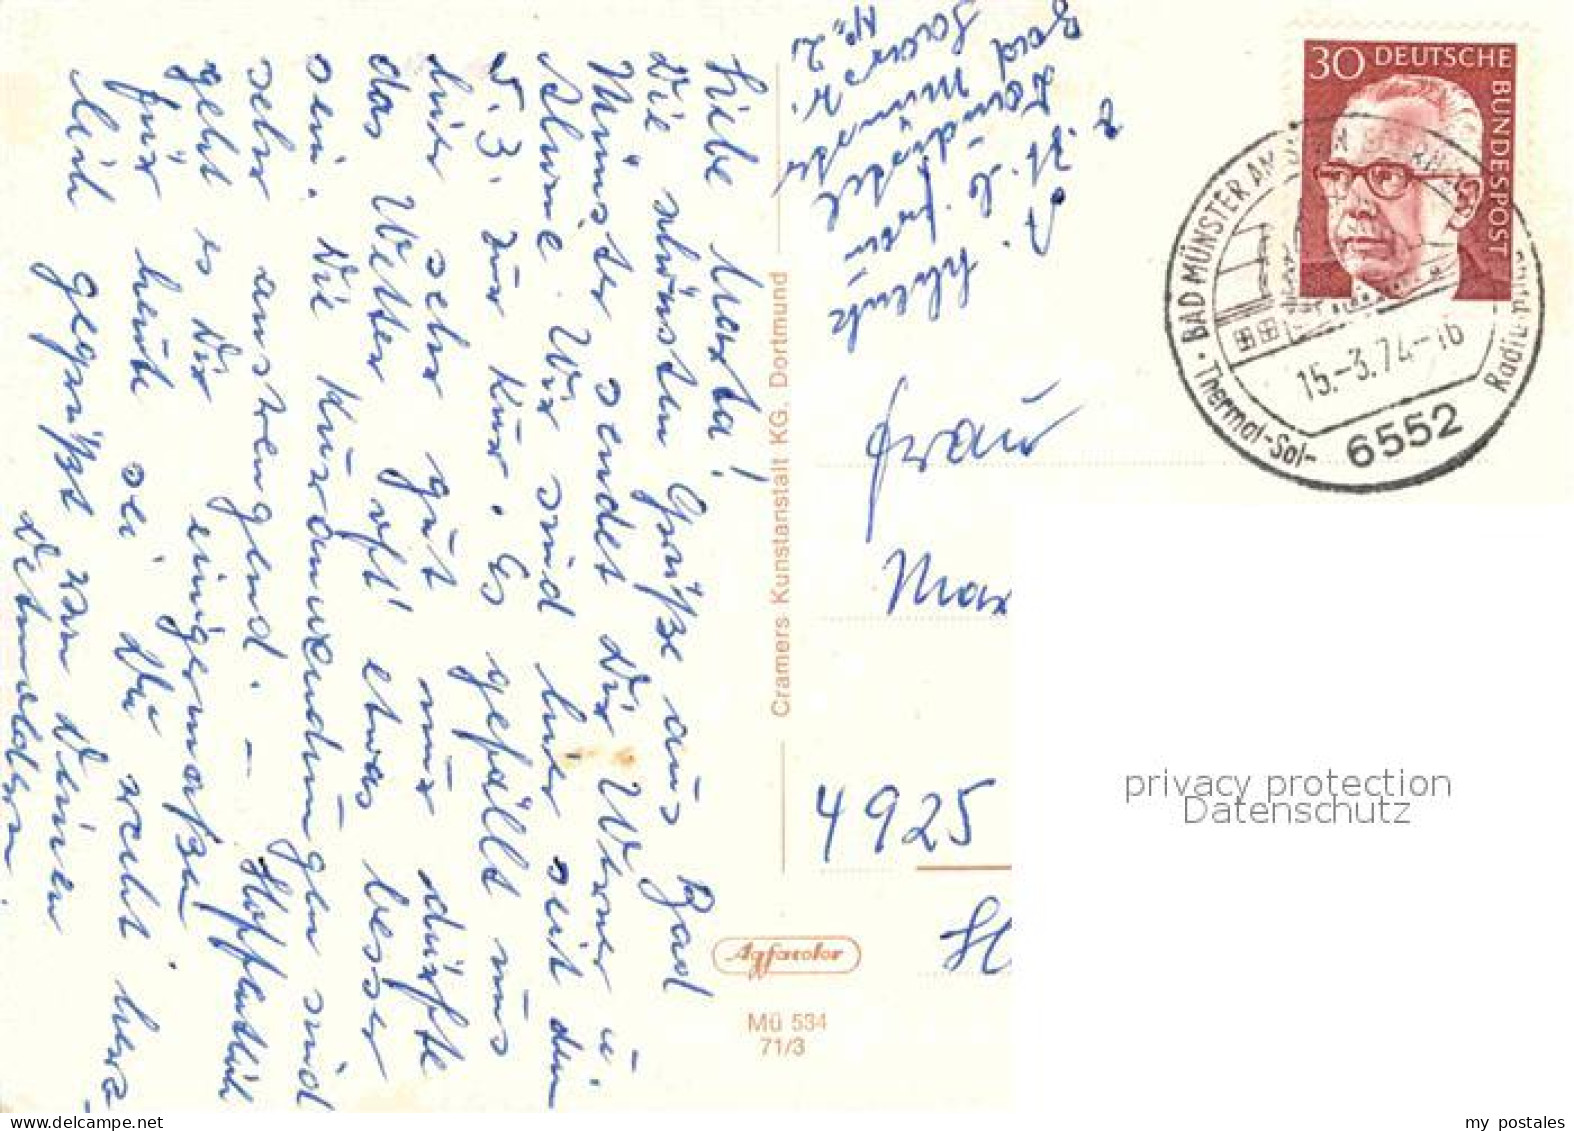 Liebe Marta!
Die schönsten Grüße aus Bad
Münster sendet Dir Werner u.
Alwine. Wir sind hier seit dem
5. 3. zur Kur. Es gefällt uns
hier sehr gut nur dürfte
das Wetter oft etwas besser
sein. Die Kuranwendungen sind
sehr anstrengend. – Hoffentlich
geht es Dir einigermaßen
für heute sei Du recht herz-
lich gegrüßt von Deinen
Detmoldern.
Cramers Kunstanstalt KG, Dortmund
Agfacolor
Mü 534
71/3
Frau
Mar
4925
Bad Münster
30 DEUTSCHE
BUNDESPOST
BAD MÜNSTER AM
Thermal-Sol-
Radi
15.-3.74-16
6552
privacy protection
Datenschutz
my postales